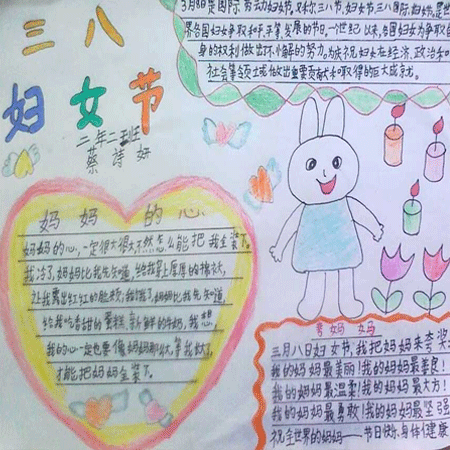 三八
妇女节
二年二班
蔡诗妍
3月8日是国际劳动妇女节,又称三八节,妇女节三八国际妇女节.是世
界各国妇女争取和平平等,发展的节日,一世纪以来,各国妇女为争取自
身的权利做出不小解的努力。为庆祝妇女在经济、政治和
社会等领域做出重要贡献和取得的巨大成就。
妈妈的心
妈妈的心,一定很大很大,不然怎么能把我全装下。
我冷了,妈妈比我先知道,给我穿上厚厚的棉衣,
让我露出红红的脸颊,我饿了,妈妈比我先知道,
给我吃香甜的蛋糕,新鲜的牛奶,我想,
我的心一定也要像妈妈那样大,等我长大了,
才能把妈妈全装下。
妈妈
三月八日妇女节,我把妈妈来夸奖:
我的妈妈最美丽!我的妈妈最善良!
我的妈妈最温柔!我的妈妈最大方!
我的妈妈最勇敢!我的妈妈最坚强
祝全世界的妈妈——节日快乐,身体健康